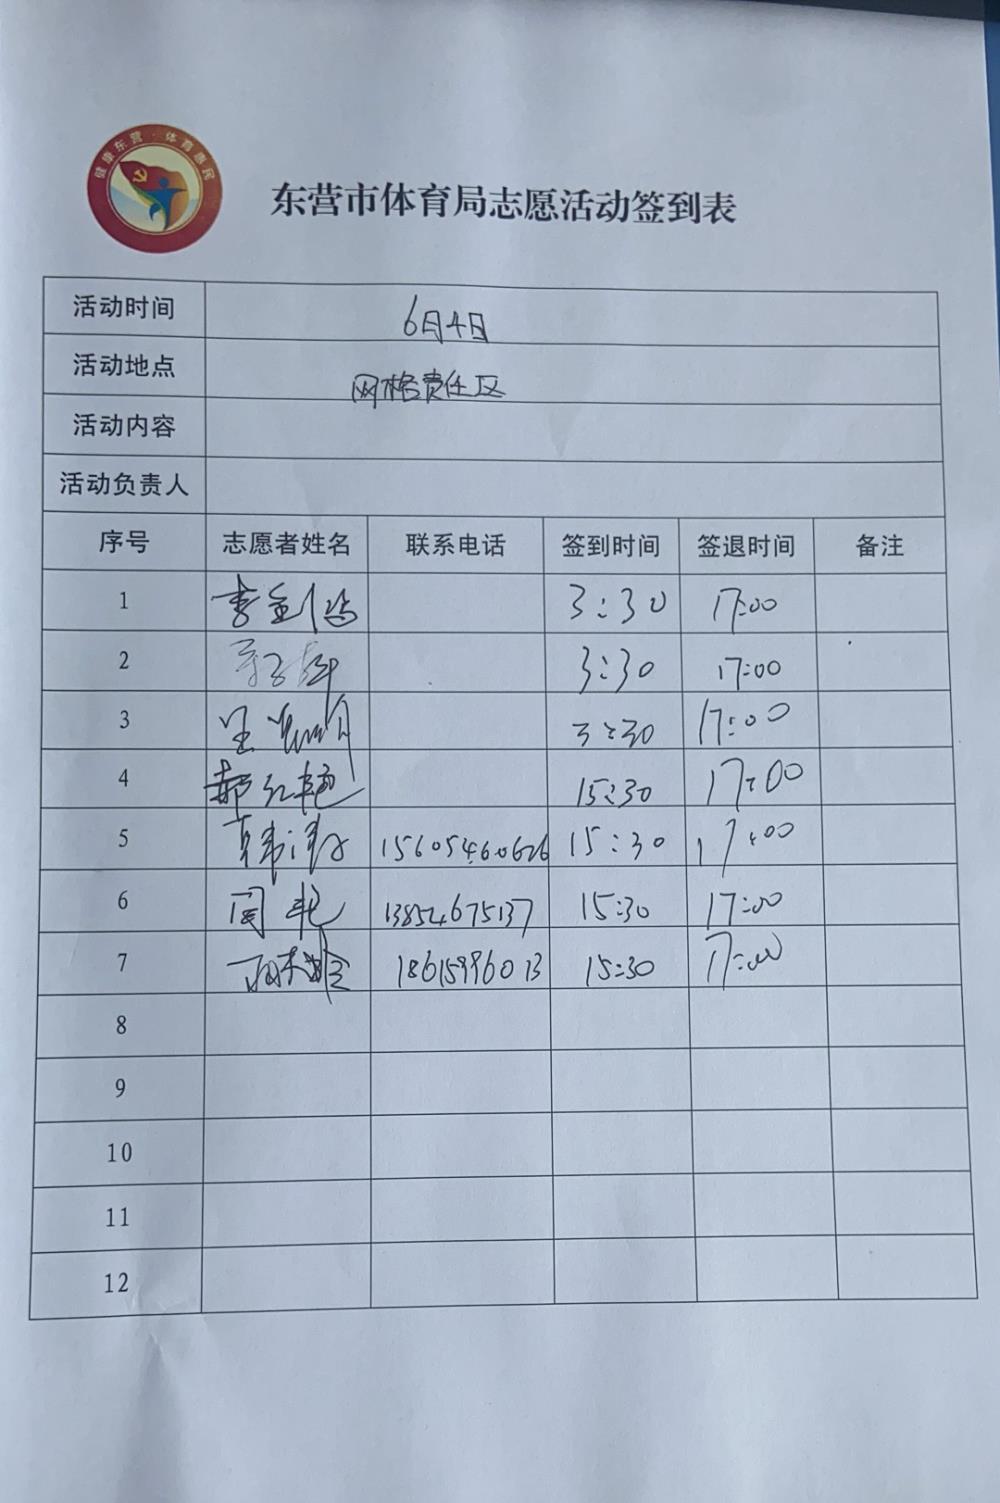 健康东营·体育惠民
东营市体育局志愿活动签到表
活动时间 6月4日
活动地点 网格责任区
活动内容
活动负责人
序号 志愿者姓名 联系电话 签到时间 签退时间 备注
1 3:30 17:00
2 3:30 17:00
3 3:30 17:00
4 郝红艳 15:30 17:00
5 15605460626 15:30 17:00
6 13854675137 15:30 17:00
7 18615996013 15:30 17:00
8
9
10
11
12